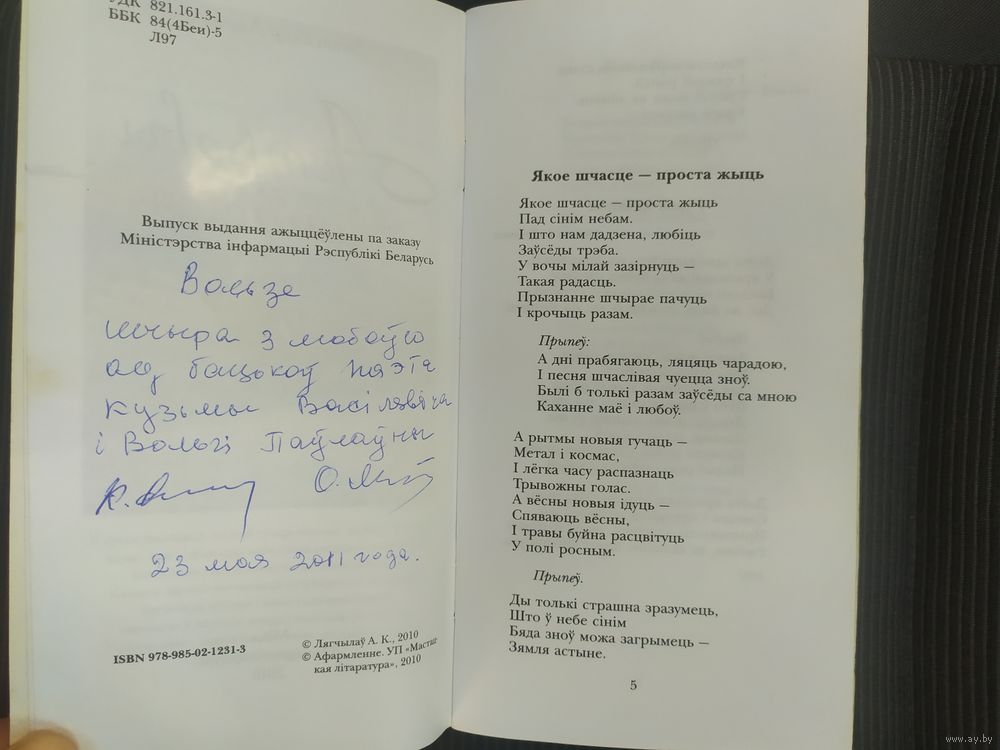 УДК 821.161.3-1
ББК 84(4Беи)-5
Л97
Выпуск выдання ажыццёўлены па заказу
Міністэрства інфармацыі Рэспублікі Беларусь
Вользе
шчыра з любоўю
ад бацькоў паэта
Кузьмы Васілявіча
і Вольгі Паўлаўны
23 мая 2011 года.
ISBN 978-985-02-1231-3
© Лягчылаў А. К., 2010
© Афармленне. УП «Мастац-
кая літаратура», 2010
Якое шчасце — проста жыць
Якое шчасце — проста жыць
Пад сінім небам.
І што нам дадзена, любіць
Заўсёды трэба.
У вочы мілай зазірнуць —
Такая радасць.
Прызнанне шчырае пачуць
І крочыць разам.
Прыпеў:
А дні прабягаюць, ляцяць чарадою,
І песня шчаслівая чуецца зноў.
Былі б толькі разам заўсёды са мною
Каханне маё і любоў.
А рытмы новыя гучаць —
Метал і космас,
І лёгка часу распазнаць
Трывожны голас.
А вёсны новыя ідуць —
Спяваюць вёсны,
І травы буйна расцвітуць
У полі росным.
Прыпеў.
Ды толькі страшна зразумець,
Што ў небе сінім
Бяда зноў можа загрымець —
Зямля астыне.
5
www.ay.by